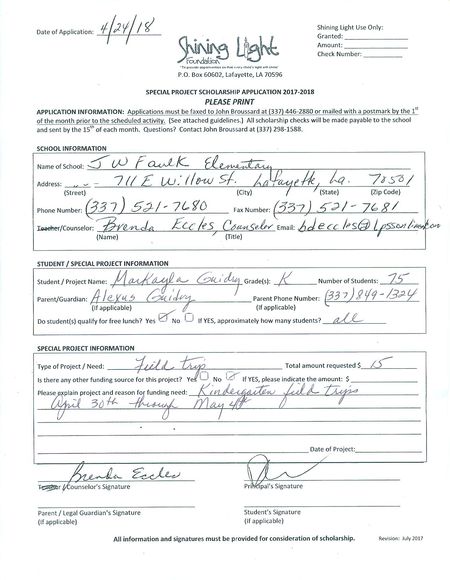 Date of Application: 4/24/18
Shining Light Use Only:
Granted:
Amount:
Check Number:
Shining Light
Foundation
P.O. Box 60602, Lafayette, LA 70596
SPECIAL PROJECT SCHOLARSHIP APPLICATION 2017-2018
PLEASE PRINT
APPLICATION INFORMATION: Applications must be faxed to John Broussard at (337) 446-2880 or mailed with a postmark by the 1st
of the month prior to the scheduled activity. (See attached guidelines.) All scholarship checks will be made payable to the school
and sent by the 15th of each month. Questions? Contact John Broussard at (337) 298-1588.
SCHOOL INFORMATION
Name of School: J W Faulk Elementary
Address: 711 E Willow St. Lafayette, La. 70501
(Street) (City) (State) (Zip Code)
Phone Number: (337) 521-7680 Fax Number: (337) 521-7681
Teacher/Counselor: Brenda Eccles, Counselor Email: bdeccles@
(Name) (Title)
STUDENT / SPECIAL PROJECT INFORMATION
Student / Project Name: Markayla Guidry Grade(s): K Number of Students: 75
Parent/Guardian: Alexus Guidry Parent Phone Number: (337) 849-1324
(If applicable) (If applicable)
Do student(s) qualify for free lunch? Yes No If YES, approximately how many students? all
SPECIAL PROJECT INFORMATION
Type of Project / Need: Field trip Total amount requested $ 15
Is there any other funding source for this project? Yes No If YES, please indicate the amount: $
Please explain project and reason for funding need: Kindergarten field trips
April 30th through May
Date of Project:
Brenda Eccles
Teacher/Counselor's Signature Principal's Signature
Parent / Legal Guardian's Signature Student's Signature
(If applicable) (If applicable)
All information and signatures must be provided for consideration of scholarship. Revision: July 2017